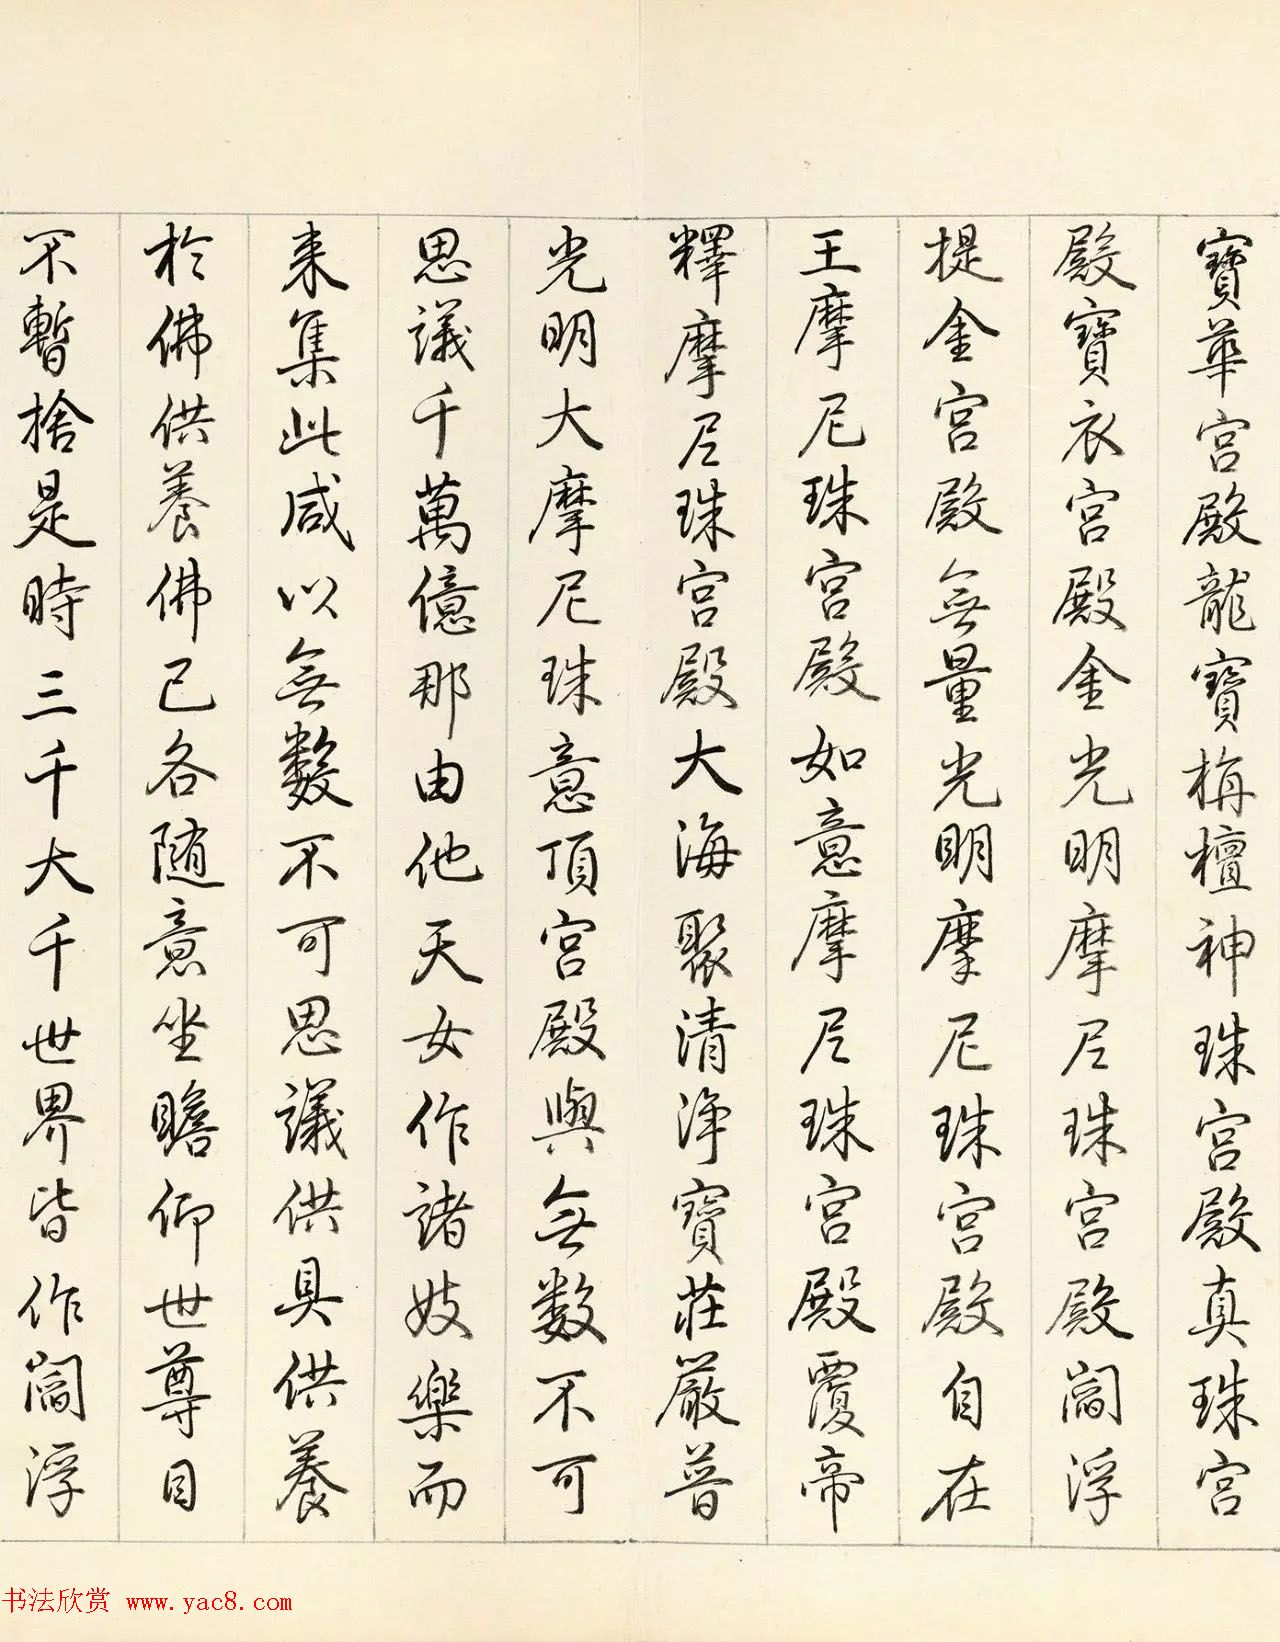 寶華宮殿龍寶栴檀神珠宮殿真珠宮
殿寶衣宮殿金光明摩尼珠宮殿閻浮
提金宮殿無量光明摩尼珠宮殿自在
王摩尼珠宮殿如意摩尼珠宮殿覆帝
釋摩尼珠宮殿大海聚清淨寶莊嚴普
光明大摩尼珠意頂宮殿與無数不可
思議千萬億那由他天女作諸妓樂而
来集此咸以無數不可思議供具供養
於佛供養佛已各随意坐瞻仰世尊目
不暫捨是時三千大千世界皆作閻浮
书法欣赏 www.yac8.com